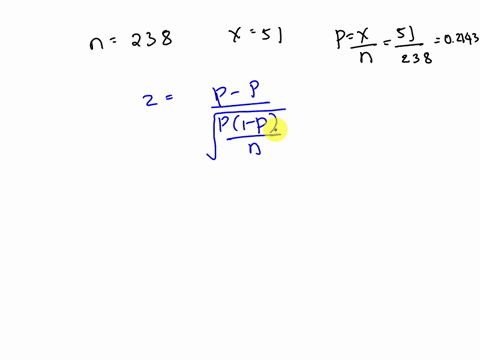 n = 238 x = 51 P = x/n = 51/238 = 0.2143
z = (p - P)/√(P(1-p)/n)